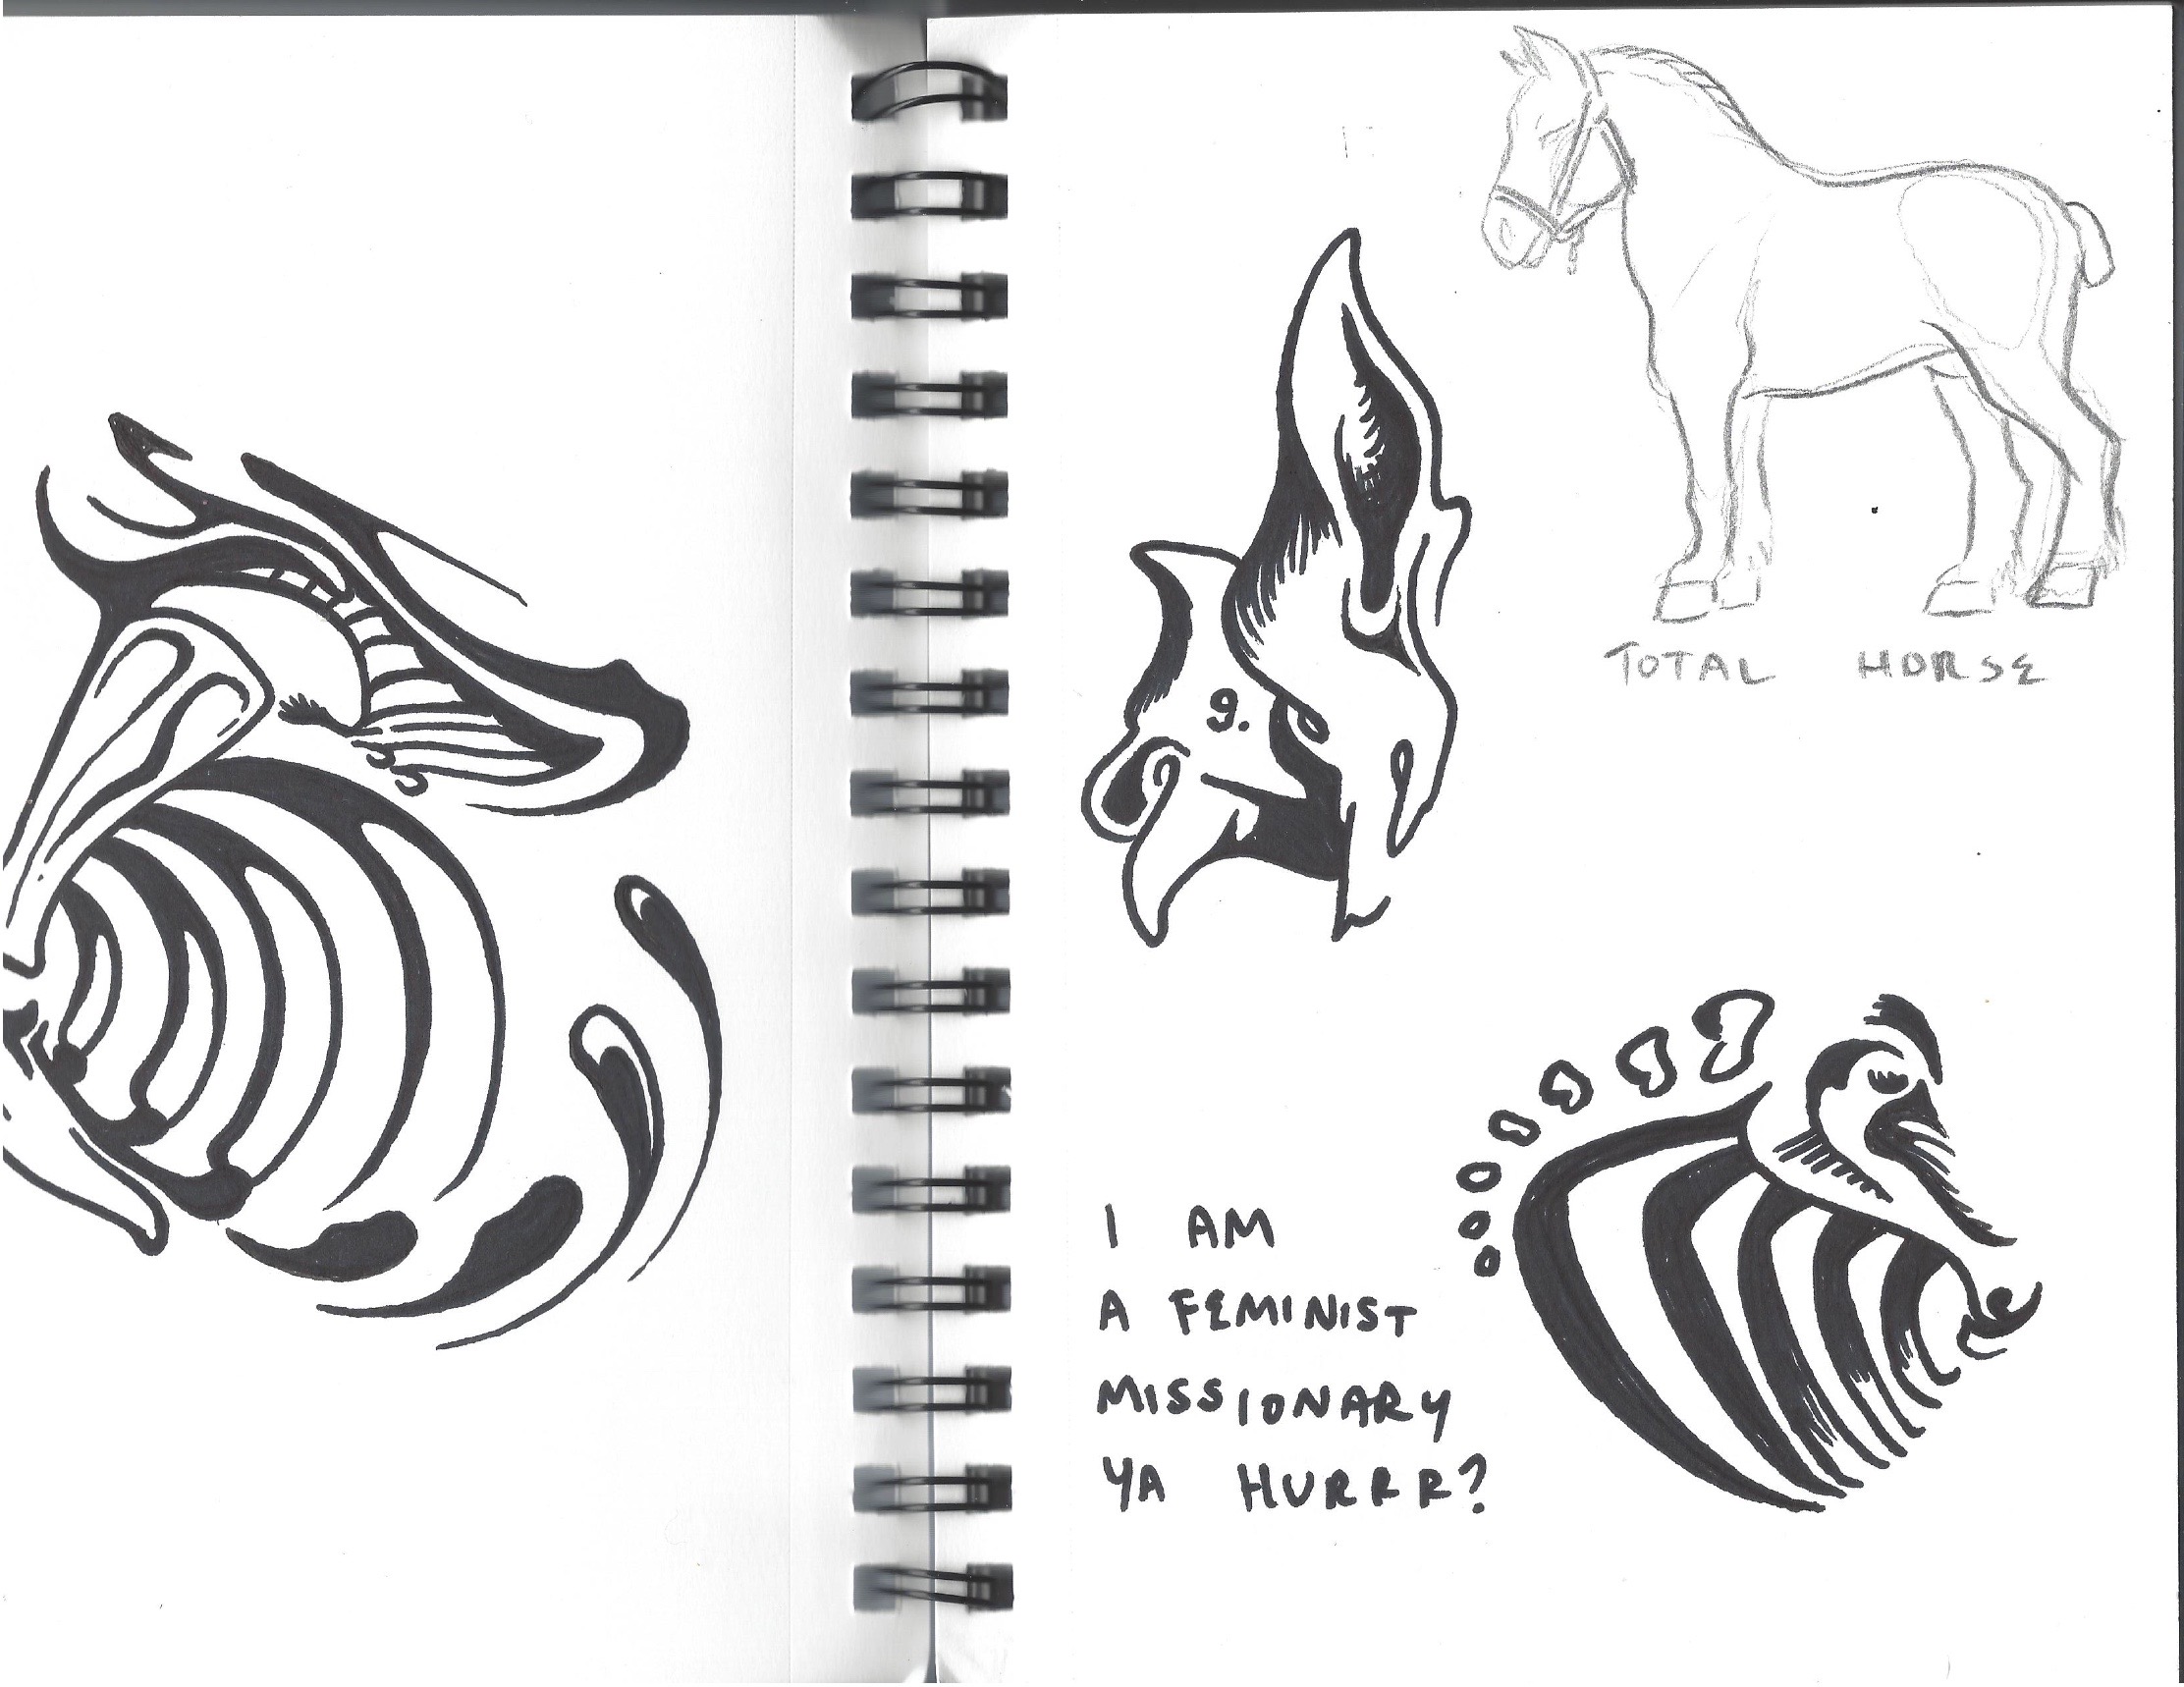 TOTAL HORSE
9.
I AM
A FEMINIST
MISSIONARY
YA HURRR?